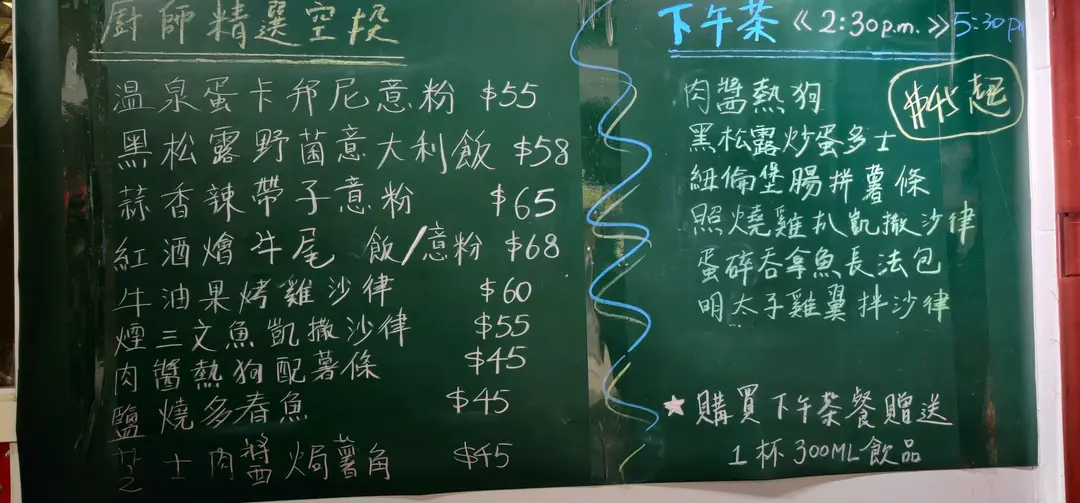 廚師精選空投
溫泉蛋卡邦尼意粉 $55
黑松露野菌意大利飯 $58
蒜香辣帶子意粉 $65
紅酒燴牛尾 飯/意粉 $68
牛油果烤雞沙律 $60
煙三文魚凱撒沙律 $55
肉醬熱狗配薯條 $45
鹽燒多春魚 $45
芝士肉醬焗薯角 $45
下午茶 《2:30p.m.》5:30p
$45起
肉醬熱狗
黑松露炒蛋多士
紐倫堡腸拼薯條
照燒雞扒凱撒沙律
蛋碎吞拿魚長法包
明太子雞翼拌沙律
★購買下午茶餐贈送
1杯300ML飲品